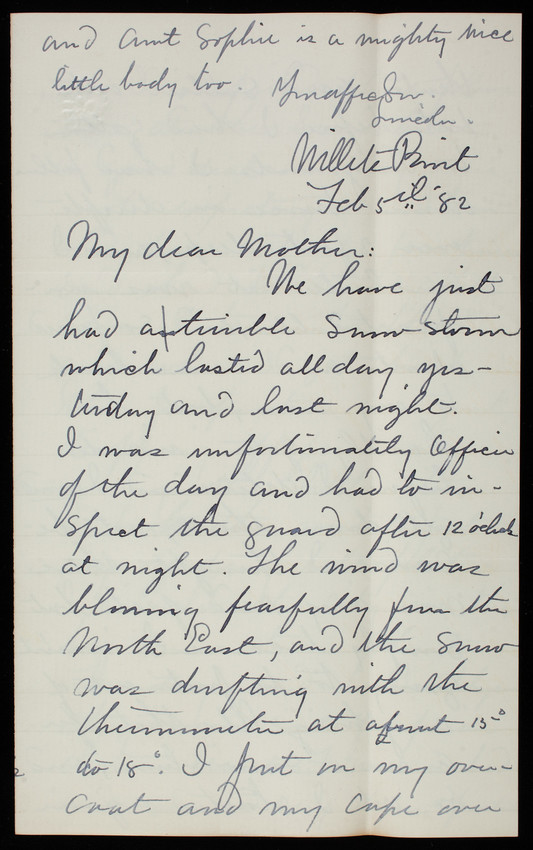 and Aunt Sophie is a mighty nice
little body too. Yr affec Son.
Lincoln.
Willets Point
Feb 5th '82
My dear Mother:
We have just
had a terrible snow storm
which lasted all day yes-
terday and last night.
I was unfortunately Officer
of the day and had to in-
spect the guard after 12 o'clock
at night. The wind was
blowing fearfully from the
North East, and the snow
was drifting with the
thermometer at about 15°
to 18°. I put on my over-
coat and my cape over